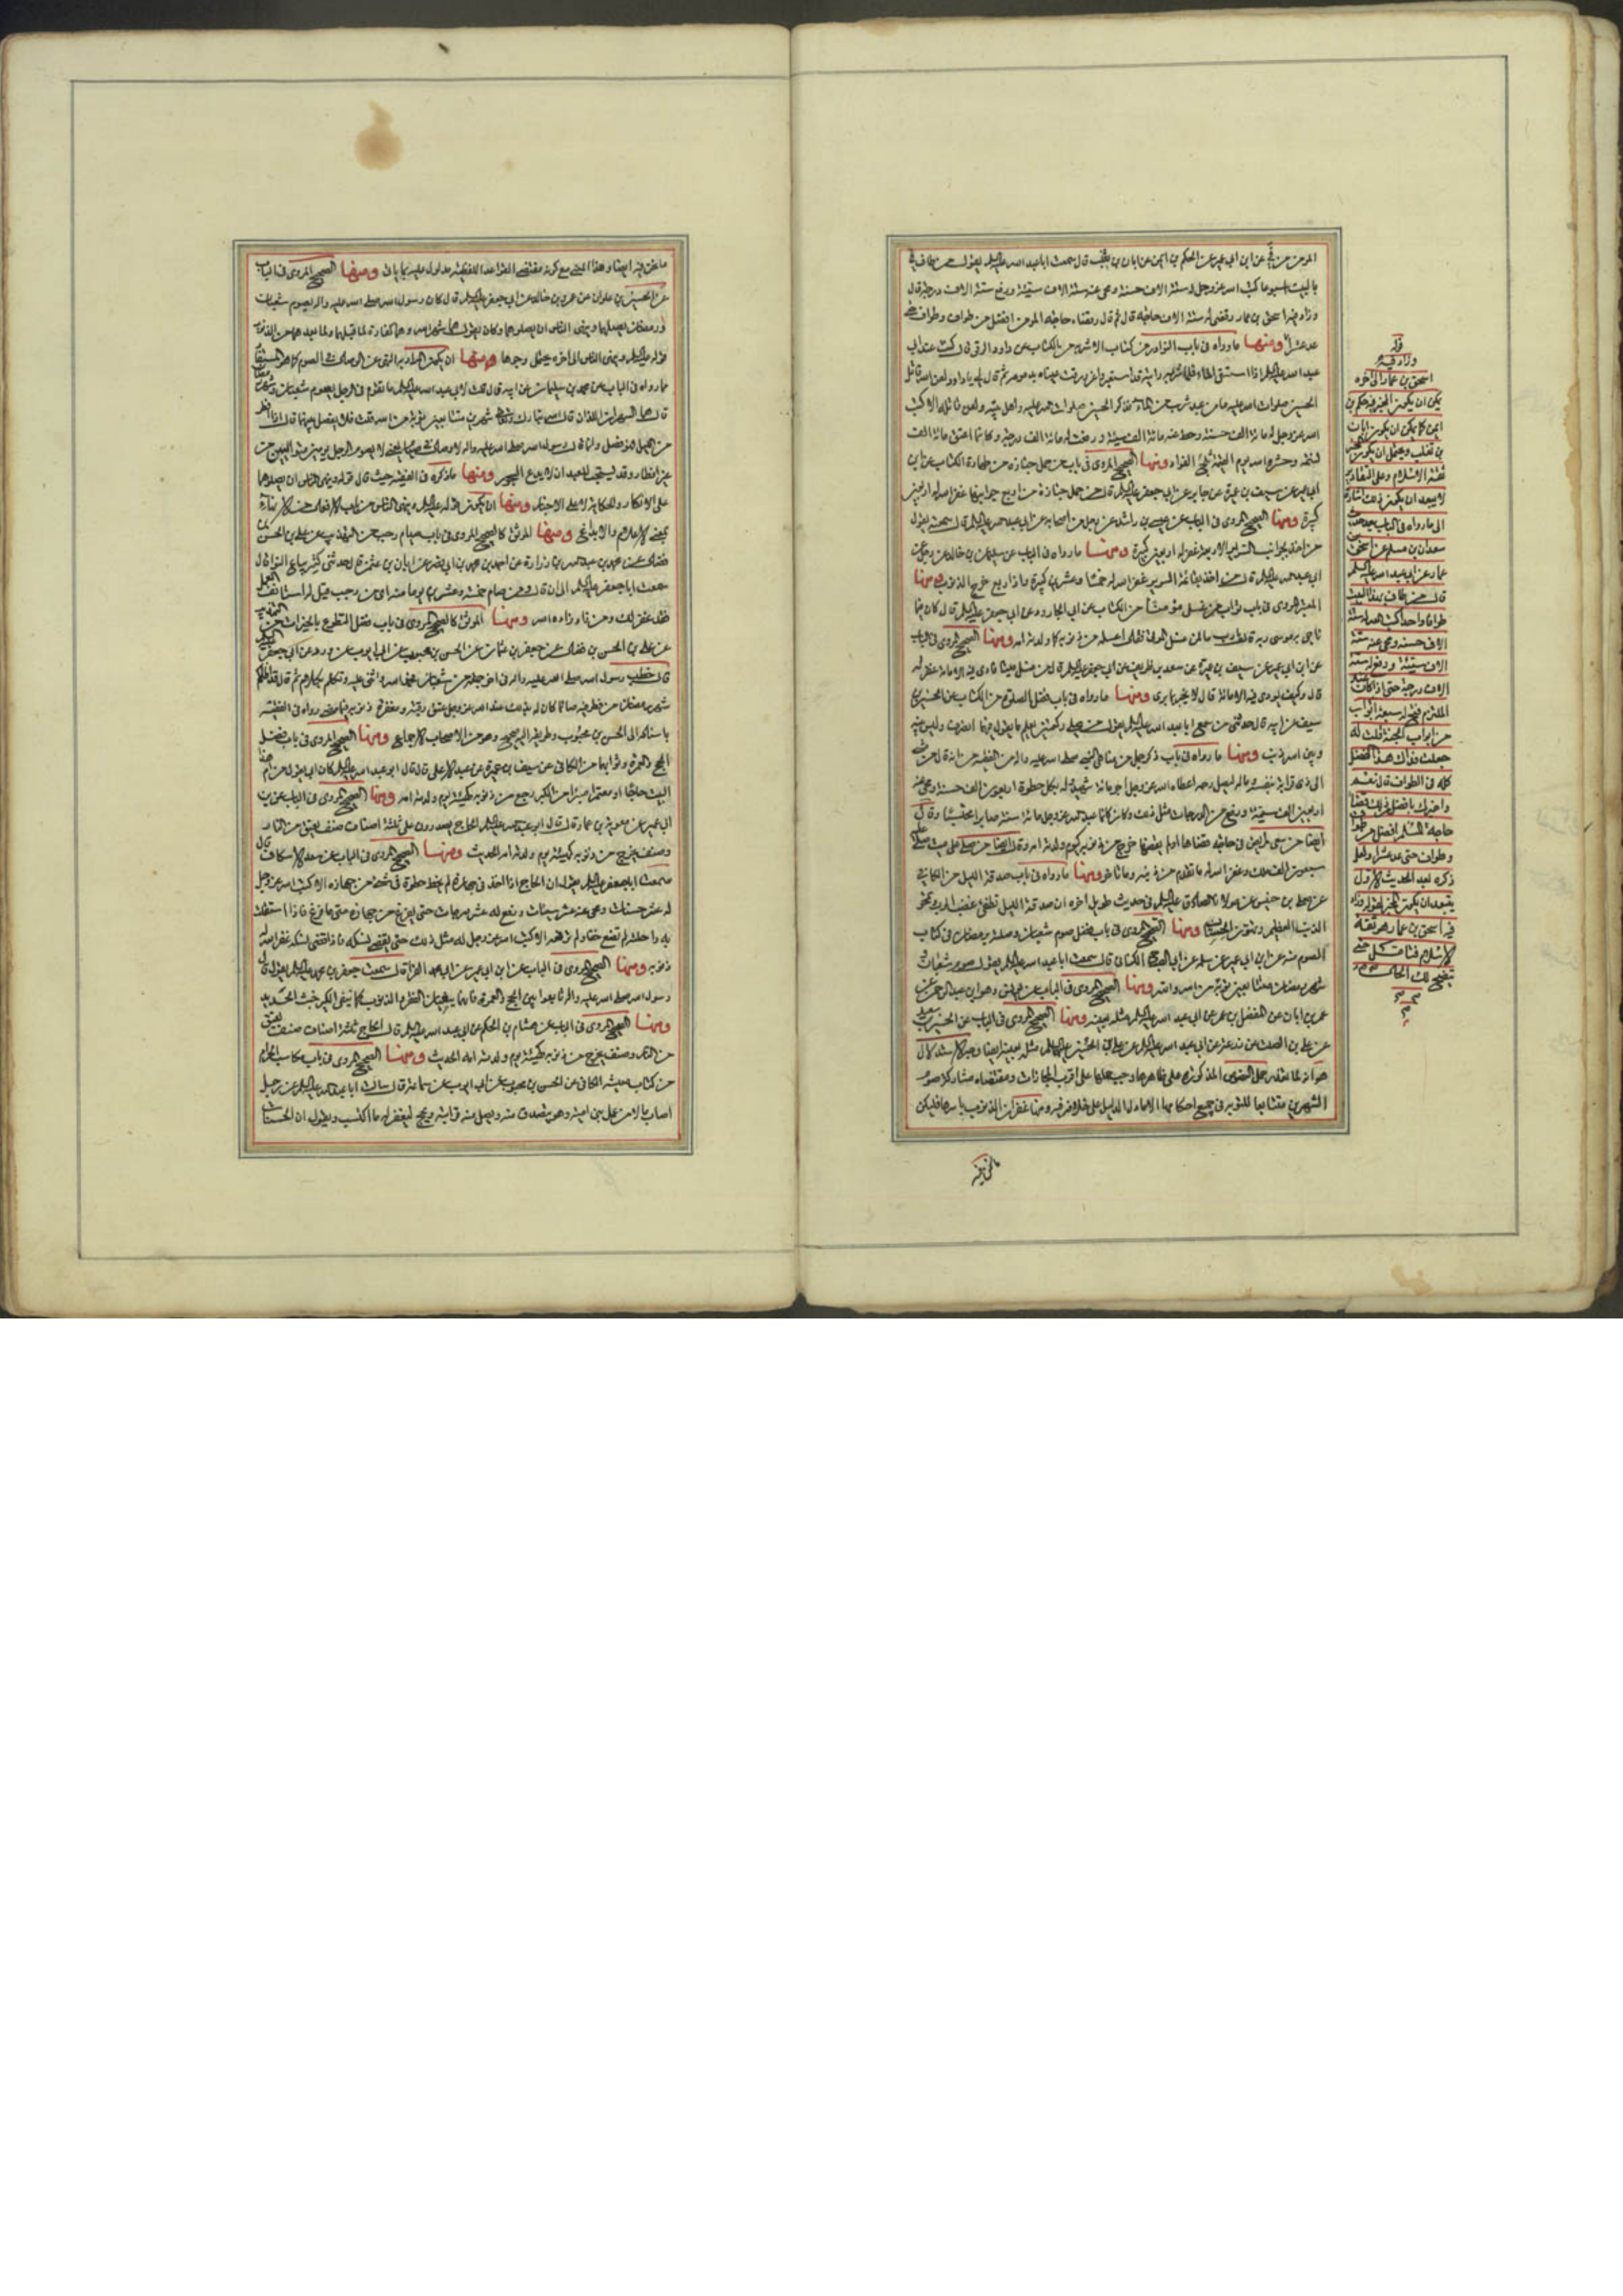 المؤمن من في عن ابن ابي عمير عن الحكم بن ايمن عن ابان بن تغلب قال سمعت ابا عبد الله عليه السلام يقول من طاف
بالبيت اسبوعا كتب الله عز وجل له ستة الاف حسنة ومحى عنه ستة الاف سيئة ورفع ستة الاف درجة قال
وزاد فيه اسحق بن عمار وقضى له ستة الاف حاجة قال ثم قال وقضاء حاجة المؤمن افضل من طواف وطواف حتى
عد عشرا ومنها ما رواه في باب النوادر من كتاب الاشربة من الكتاب عن داود الرقي قال كنت عند ابي
عبد الله عليه السلام اذا استسقى الماء فلما شربه رايته قد استعبر واغرورقت عيناه بدموعه ثم قال لي يا داود لعن الله قاتل
الحسين صلوات الله عليه وما من عبد شرب من الماء فذكر الحسين صلوات الله عليه واهل بيته ولعن قاتله الا كتب
الله عز وجل له مائة الف حسنة وحط عنه مائة الف سيئة ورفع له مائة الف درجة وكانما اعتق مائة الف
نسمة وحشره الله يوم القيمة ثلج الفؤاد ومنها الصحيح المروي في باب من حمل جنازة من طهارة الكتاب عن ابن
ابي عمير عن سيف بن عميرة عن جابر عن ابي جعفر عليه السلام قال من حمل جنازة من اربع جوانبها غفر الله له اربعين
كبيرة ومنها الصحيح المروي في الباب عن عيسى بن راشد عن رجل من اصحابه عن ابي عبد الله عليه السلام قال سمعته يقول
من اخذ بجوانب السرير الاربعة غفر له اربعين كبيرة ومنها ما رواه في الباب عن سليمان بن خالد عن رجل عن
ابي عبد الله عليه السلام قال من اخذ بقائمة السرير غفر الله له خمسا وعشرين كبيرة واذا ربع خرج من الذنوب ومنها
المروي في باب ثواب من يغسل مؤمنا من الكتاب عن ابي الجارود عن ابي جعفر عليه السلام قال كان فيما
ناجى به موسى ربه قال يا رب ما لمن غسل الموتى فقال اغسله من ذنوبه كما ولدته امه ومنها الصحيح المروي في الباب
عن ابن ابي عمير عن سيف بن عميرة عن سعد بن طريف عن ابي جعفر عليه السلام قال من غسل ميتا فادى فيه الامانة غفر له
قال وكيف يودي فيه الامانة قال لا يخبر بما يرى ومنها ما رواه في باب فضل الصلوة من الكتاب عن الحسين بن
سيف عن ابيه قال حدثني من سمع ابا عبد الله عليه السلام يقول من صلى ركعتين يعلم ما يقول فيهما انصرف وليس بينه
وبين الله ذنب ومنها ما رواه في باب ذكر جمل من مناهي النبي صلى الله عليه واله من الفقيه
الى ذي قرابة بنفسه وماله ليصل رحمه اعطاه الله عز وجل اجر مائة شهيد وله بكل خطوة اربعون الف حسنة ومحى عنه
اربعين الف سيئة ورفع من الدرجات مثل ذلك وكان كانما عبد الله عز وجل مائة سنة صابرا محتسبا وقال
ايضا من سعى لمريض في حاجة قضاها او لم يقضها خرج من ذنوبه كيوم ولدته امه وقال ايضا من صلى على ميت صلى عليه
سبعون الف ملك وغفر الله له ما تقدم من ذنبه وما تاخر ومنها ما رواه في باب صدقة الليل من الكافي
في حديث طويل اخره ان صدقة الليل تطفئ غضب الرب وتمحو
الذنب العظيم وتهون الحساب ومنها الصحيح المروي في باب فضل صوم شعبان وصلته برمضان في كتاب
الصوم منه عن ابن ابي عمير عن سلمة عن ابي الصباح الكناني قال سمعت ابا عبد الله عليه السلام يقول صوم شعبان و
شهر رمضان متتابعين توبة من الله والله ومنها الصحيح المروي في الباب
عمر بن ابان عن المفضل بن عمر عن ابي عبد الله عليه السلام مثله بعينه ومنها الصحيح المروي في الباب عن الحسين بن سعيد
هو انه لما تعذر حمل النصوص المذكورة على ظاهرها وجب حملها على اقرب المجازات ومقتضاه مشاركة صوم
الشهرين متتابعا للتوبة في جميع احكامها الا ما دل الدليل على خلافه فيه ومنها غفران الذنوب باسرها فليكن
ما نحن فيه
قوله
وزاد فيه
اسحق بن عمار الى اخره
يمكن ان يكون الخبر من حكم بن
ايمن كما يمكن ان يكون ابان
بن تغلب ويحتمل ان يكون من
ثقة الاسلام وعلى التقادير
لا يبعد ان يكون ذلك اشارة
الى ما رواه في الباب بعد حديث
سعدان بن مسلم عن اسحق بن
عمار عن ابي عبد الله عليه السلام
قال من طاف بهذا البيت
طوافا واحدا كتب الله له ستة
الاف حسنة ومحى عنه ستة
الاف سيئة ورفع له ستة
الاف درجة حتى اذا كان عند
الملتزم فتح له سبعة ابواب
من ابواب الجنة قلت له
جعلت فداك هذا الفضل
كله في الطواف قال نعم
واخبرك بافضل من ذلك قضاء
حاجة المسلم افضل من طواف
وطواف حتى عد عشرا ولعل
ذكره بعد الحديث الاول
يبعد ان يكون الخبر لقوله وزاد
فيه اسحق بن عمار هو ثقة
الاسلام فتامل حتى
يتضح لك الحال
ما نحن فيه ايضا وهذا المعنى مع كونه مقتضى القواعد اللفظية مدلول عليه بما ياتي ومنها الصحيح المروي في الباب
عن الحسين بن علوان عن عمرو بن خالد عن ابي جعفر عليه السلام قال كان رسول الله صلى الله عليه واله يصوم شعبان
ورمضان يصلهما وينهى الناس ان يصلوهما وكان يقول هما شهرا الله وهما كفارة لما قبلهما ولما بعدهما من الذنوب
قوله عليه السلام وينهى الناس الى اخره يحتمل وجوها منها ان يكون المراد به النهي عن الوصال في الصوم كما هو المستفاد
مما رواه في الباب عن محمد بن سليمان عن ابيه قال قلت لابي عبد الله عليه السلام ما تقول في الرجل يصوم شعبان وشهر رمضان
قال هما الشهران اللذان قال الله تبارك وتعالى شهرين متتابعين توبة من الله قلت فلا يفصل بينهما قال اذا افطر
من الليل فهو فصل وانما قال رسول الله صلى الله عليه واله لا وصال في صيام يعني لا يصوم الرجل يومين متواليين من
غير افطار وقد يستحب للعبد ان لا يدع السحور ومنها ما ذكره في الفقيه حيث قال قوله وينهى الناس ان يصلوهما
على الانكار والحكاية لا على الاخبار ومنها ان يكون قوله عليه السلام وينهى الناس من باب الافعال
بمعنى الاعلام والابلاغ ومنها الموثق كالصحيح المروي في باب صيام رجب من التهذيب عن علي بن الحسن بن
فضال عن محمد بن عبد الله بن زرارة عن احمد بن محمد بن ابي نصر عن ابان بن عثمان قال حدثنا كثير بياع النوا قال
سمعت ابا جعفر عليه السلام الى ان قال ومن صام خمسة وعشرين يوما منه اي من رجب قيل له استانف العمل
فقد غفر لك ومن زاد زاده الله ومنها الموثق كالصحيح المروي في باب فضل التطوع بالخيرات من التهذيب
عن علي بن الحسن بن فضال عن جعفر بن عثمان عن الحسن بن محبوب عن ابي ايوب عن ابي الورد عن ابي جعفر عليه السلام
قال خطب رسول الله صلى الله عليه واله في اخر جمعة من شعبان فحمد الله واثنى عليه وتكلم بكلام ثم قال قد اظلكم
شهر رمضان من فطر فيه صائما كان له بذلك عند الله عز وجل عتق رقبة ومغفرة ذنوبه فيما مضى رواه في الفقيه
باسناده الى الحسن بن محبوب وطريقه اليه صحيح وهو من الاصحاب الاجماع ومنها الصحيح المروي في باب فضل
الحج والعمرة وثوابهما من الكافي عن سيف بن عميرة عن عبد الاعلى قال قال ابو عبد الله عليه السلام كان ابي يقول من ام هذا
البيت حاجا او معتمرا مبرءا من الكبر رجع من ذنوبه كهيئة يوم ولدته امه ومنها الصحيح المروي في الباب عن ابن
ابي عمير عن معوية بن عمار قال قال ابو عبد الله عليه السلام الحاج يصدرون على ثلثة اصناف صنف يعتق من النار
وصنف يخرج من ذنوبه كهيئة يوم ولدته امه الحديث ومنها الصحيح المروي في الباب عن سعد الاسكاف قال
سمعت ابا جعفر عليه السلام يقول ان الحاج اذا اخذ في جهازه لم يخط خطوة في شيء من جهازه الا كتب الله عز وجل
له عشر حسنات ومحى عنه عشر سيئات ورفع له عشر درجات حتى يفرغ من جهازه متى ما فرغ فاذا استقلت
به راحلته لم تضع خفا ولم ترفعه الا كتب الله عز وجل له مثل ذلك حتى يقضي نسكه فاذا قضى نسكه غفر الله له
ذنوبه ومنها الصحيح المروي في الباب عن ابن ابي عمير عن ابي محمد الفراء قال سمعت جعفر بن محمد عليه السلام يقول قال
رسول الله صلى الله عليه واله تابعوا بين الحج والعمرة فانهما ينفيان الفقر والذنوب كما ينفي الكير خبث الحديد
ومنها الصحيح المروي في الباب عن هشام بن الحكم عن ابي عبد الله عليه السلام قال الحاج ثلثة اصناف صنف يعتق
من النار وصنف يخرج من ذنوبه كهيئة يوم ولدته امه الحديث ومنها الصحيح المروي في باب مكاسب الحرام
من كتاب معيشة الكافي عن الحسن بن محبوب عن ابي ايوب عن سماعة قال سالت ابا عبد الله عليه السلام عن رجل
اصاب مالا من عمل بني امية وهو يتصدق منه ويصل منه قرابته ويحج ليغفر له ما اكتسب ويقول ان الحسنات